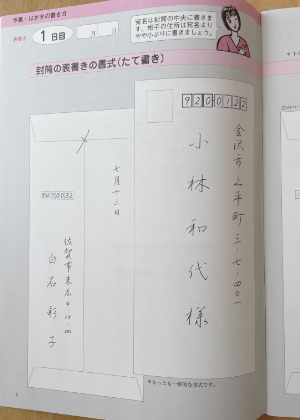 手紙・はがきの書き方
表書き 1日目 月 日
宛名は封筒の中央に書きま
す。相手の住所は宛名より
やや小ぶりに書きましょう。
封筒の表書きの書式(たて書き)
920-0122
金沢市上平町三-七-四〇一
小林和代様
七月十三日
佐賀市末広
白石彩子
*もっとも一般的な書式です。